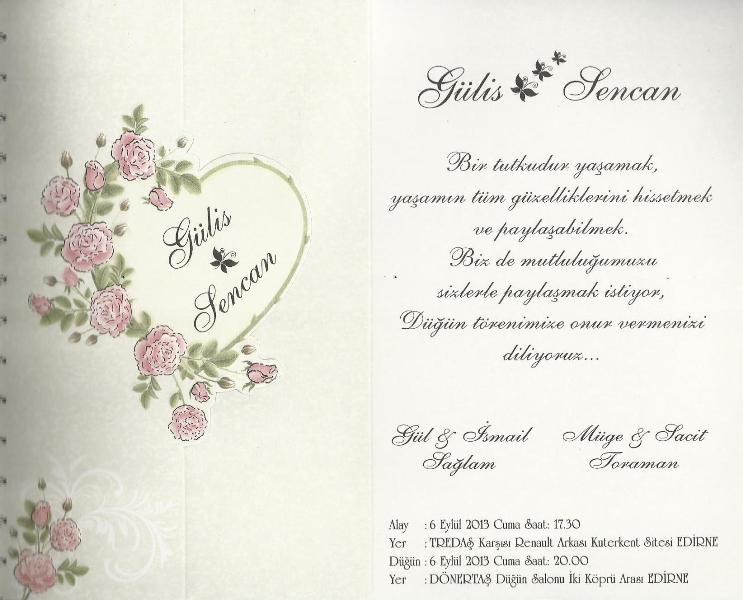 Gülis
Sencan
Gülis Sencan
Bir tutkudur yaşamak,
yaşamın tüm güzelliklerini hissetmek
ve paylaşabilmek.
Biz de mutluluğumuzu
sizlerle paylaşmak istiyor,
Düğün törenimize onur vermenizi
diliyoruz...
Gül & İsmail
Sağlam
Müge & Sacit
Toraman
Alay : 6 Eylül 2013 Cuma Saat: 17.30
Yer : TREDAŞ Karşısı Renault Arkası Kuterkent Sitesi EDİRNE
Düğün : 6 Eylül 2013 Cuma Saat: 20.00
Yer : DÖNERTAŞ Düğün Salonu İki Köprü Arası EDİRNE